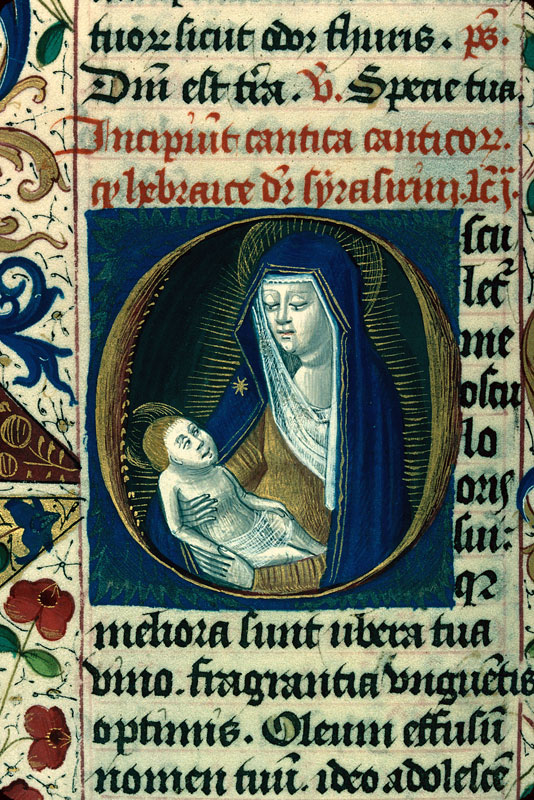 tuoꝝ sicut odor thuris. ps̄.
Dn̄i est tr̄a. V̄. Specie tua.
Incipiūt cantica canticoꝝ.
q̄ hebraice dr̄ syrasirim. lc̄. j.
scu
let᷑
me
oscu
lo
oris
sui:
qꝛ
meliora sunt ubera tua
vino. fragrantia vnguētis
optimis. Oleum effusū
nomen tuū. ideo adolescē